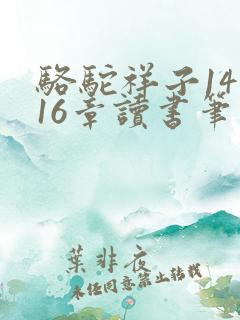 駱駝祥子14
16章讀書筆
葉非夜
未經同意禁止轉載